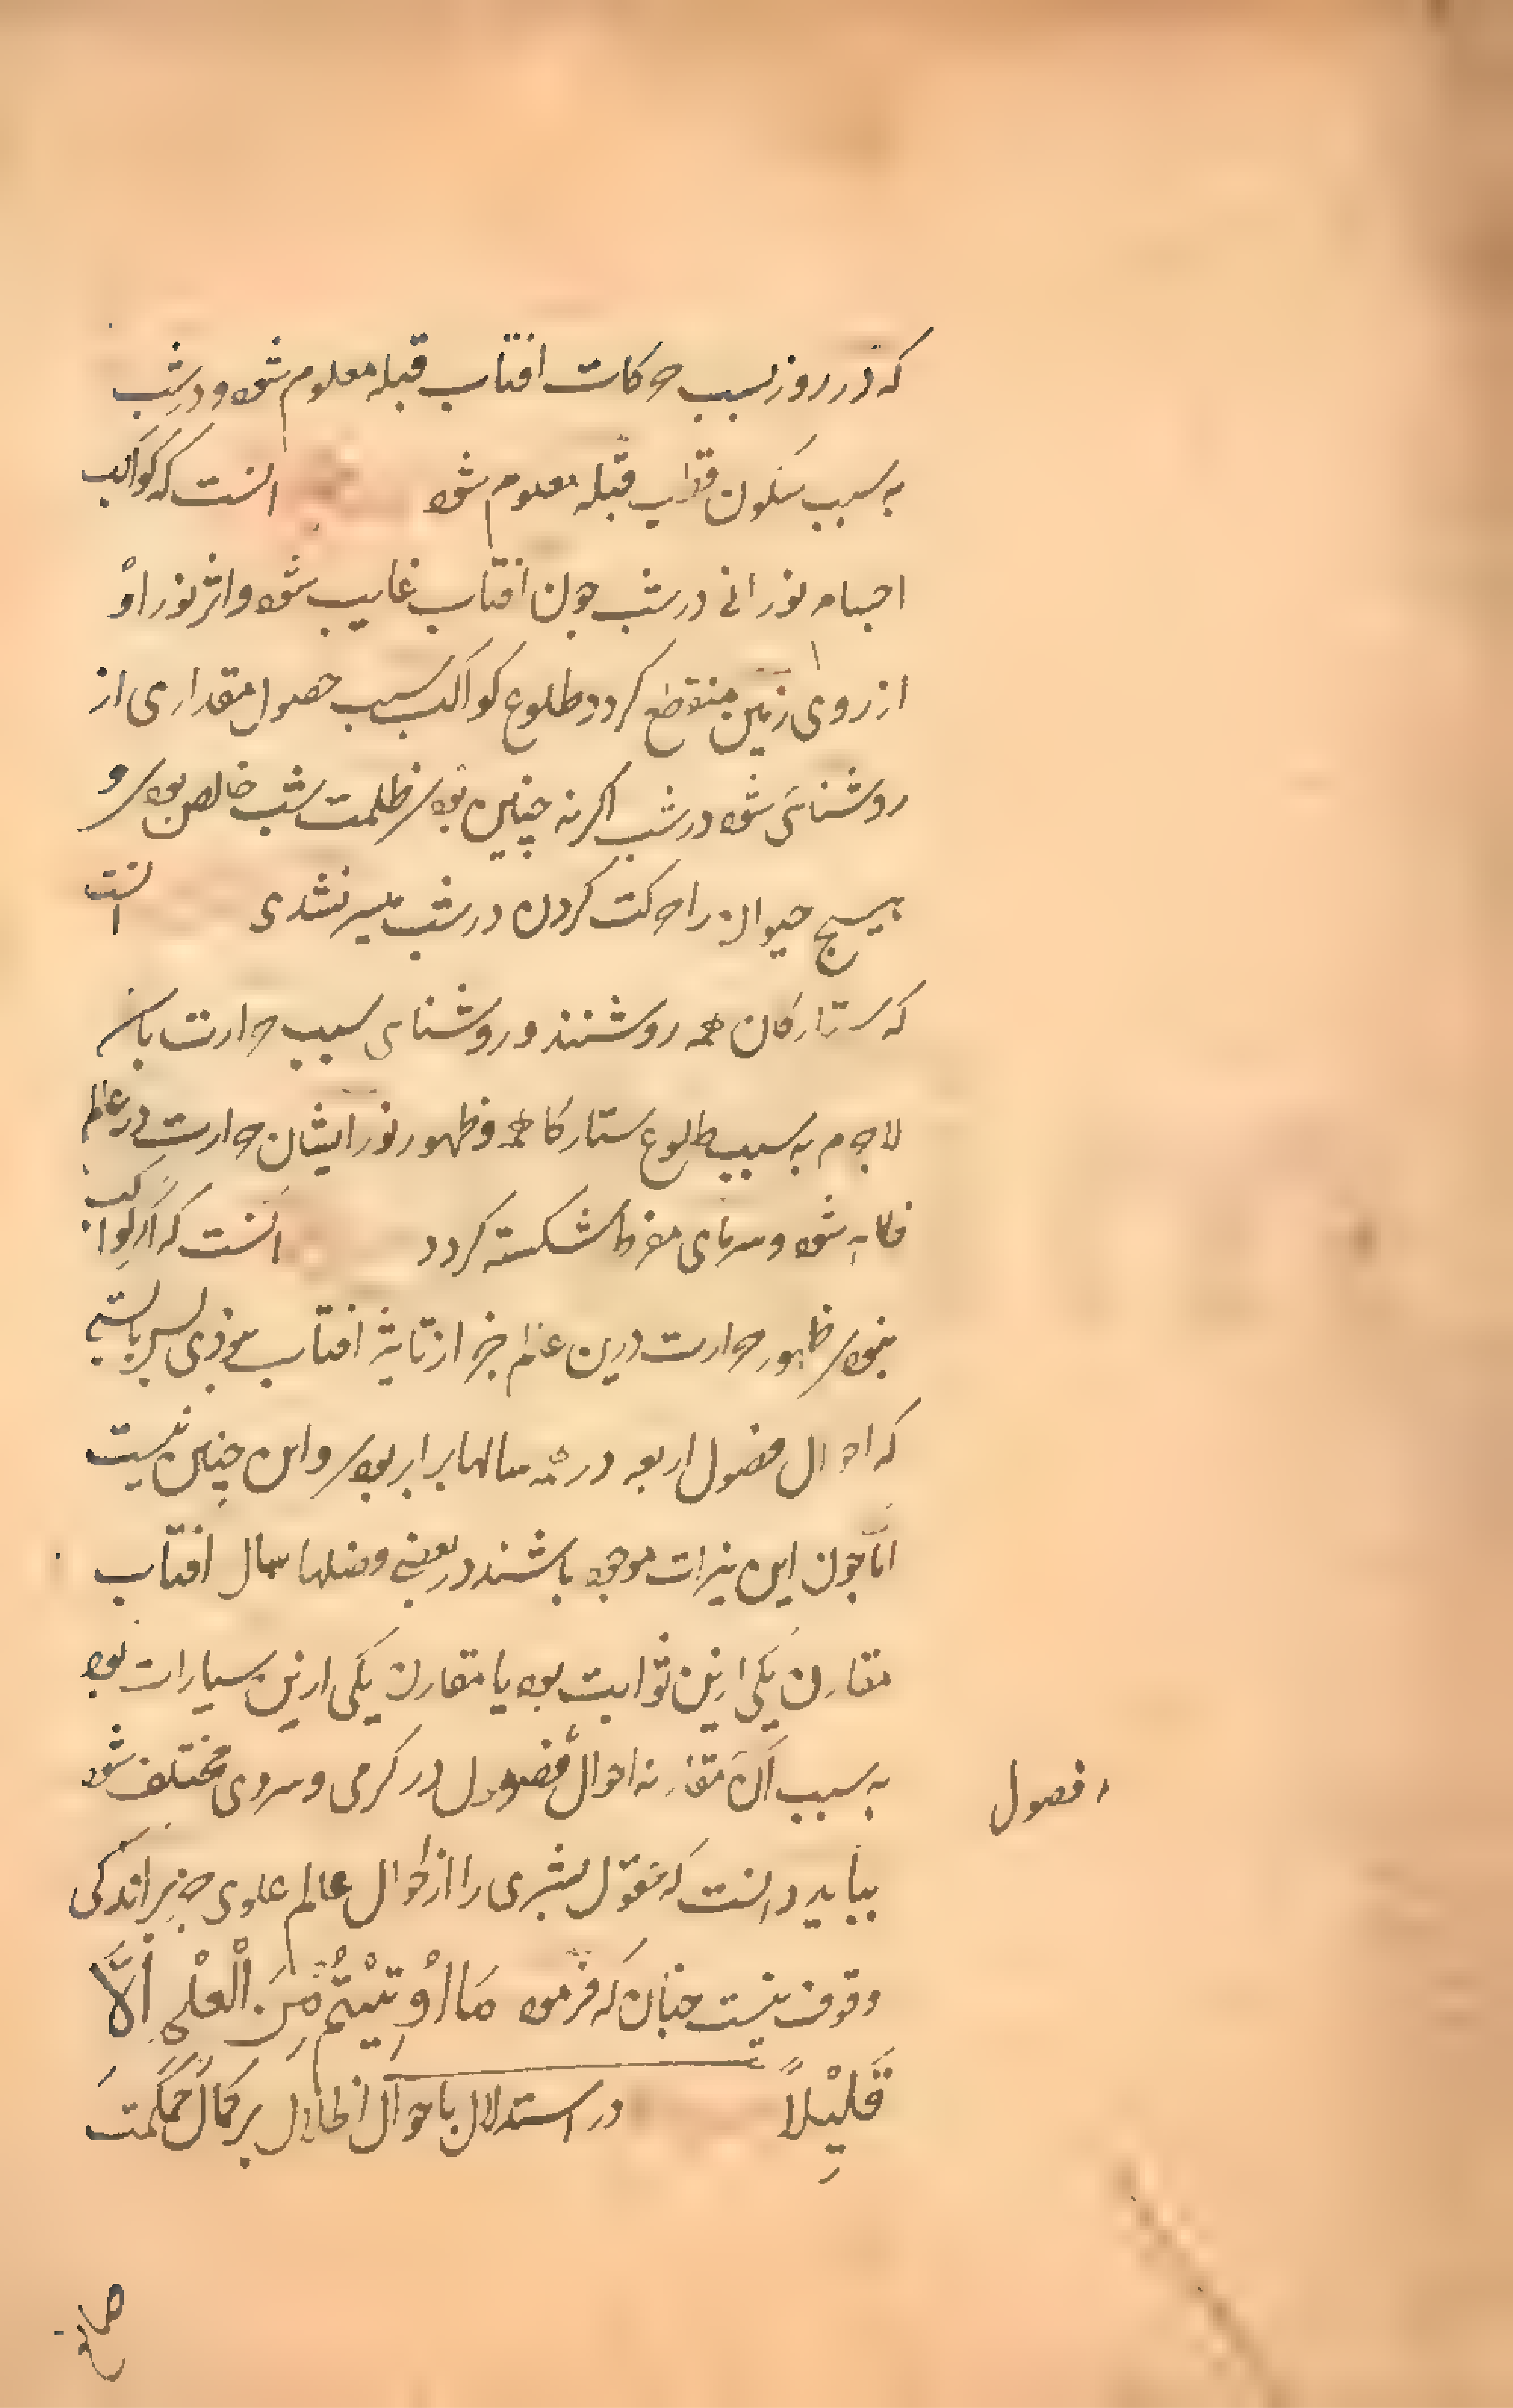 که در روز بسبب حرکات افتاب قبله معلوم شود و در شب
به سبب سکون قطب قبله معلوم شود انست که کواکب
اجسام نورانی در شب چون افتاب غایب شود واثر نور او
از روی زمین منقطع کردد طلوع کواکب سبب حصول مقداری از
روشنائی شود در شب اکر نه چنین بودی ظلمت شب خالص بودی و
هیچ حیوان را حرکت کردن در شب میسر نشدی انست
که ستارکان همه روشنند و روشنای سبب حرارت باشد
لاجرم به سبب طلوع ستارکان و ظهور نور ایشان حرارت در عالم
ظاهر شود و سرمای مفرط شکسته کردد انست که اکر کواکب
نبودی ظهور حرارت درین عالم جز از تاثیر افتاب نبودی پس بایستی
که احوال فصول اربعه در همه سالها برابر بودی و این چنین نیست
اما چون این نیرات موجود باشند در بعضی فصلها سال افتاب
مقارن یکی ازین ثوابت بود یا مقارن یکی ازین سیارات بود
به سبب آن مقارنه احوال فصول در کرمی و سردی مختلف شود
فصول
بباید دانست که عقول بشری را از احوال عالم علوی جز اندکی
وقوف نیست چنان که فرمود مَا اُوْتِیْتُمْ مِنَ الْعِلْمِ اِلَّا
قَلِیْلاً در استدلال باحوال اظلال بر کمال حکمت
صانع